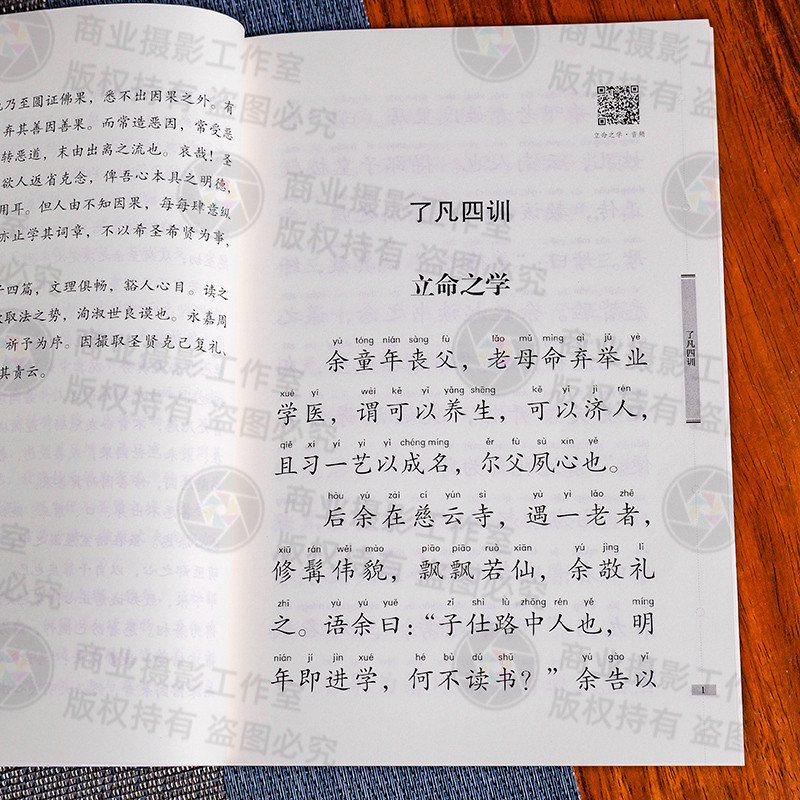 也乃至圆证佛果，悉不出因果之外。有
弃其善因善果。而常造恶因，常受恶
转恶道，末由出离之流也。哀哉！圣
欲人返省克念，俾吾心本具之明德，
用耳。但人由不知因果，每每肆意纵
亦止学其词章，不以希圣希贤为事，
四篇，文理俱畅，豁人心目。读之
取法之势，洵淑世良谟也。永嘉周
祈予为序。因撮取圣贤克己复礼、
其责云。
立命之学·音频
了凡四训
立命之学
yú tóng nián sàng fù lǎo mǔ mìng qì jǔ yè
余童年丧父，老母命弃举业
xué yī wèi kě yǐ yǎng shēng kě yǐ jì rén
学医，谓可以养生，可以济人，
qiě xí yī yì yǐ chéng míng ěr fù sù xīn yě
且习一艺以成名，尔父夙心也。
hòu yú zài cí yún sì yù yī lǎo zhě
后余在慈云寺，遇一老者，
xiū rán wěi mào piāo piāo ruò xiān yú jìng lǐ
修髯伟貌，飘飘若仙，余敬礼
zhī yù yú yuē zǐ shì lù zhōng rén yě míng
之。语余曰：“子仕路中人也，明
nián jí jìn xué hé bù dú shū yú gào yǐ
年即进学，何不读书？”余告以
了凡四训
1
商业摄影工作室
版权持有 盗图必究